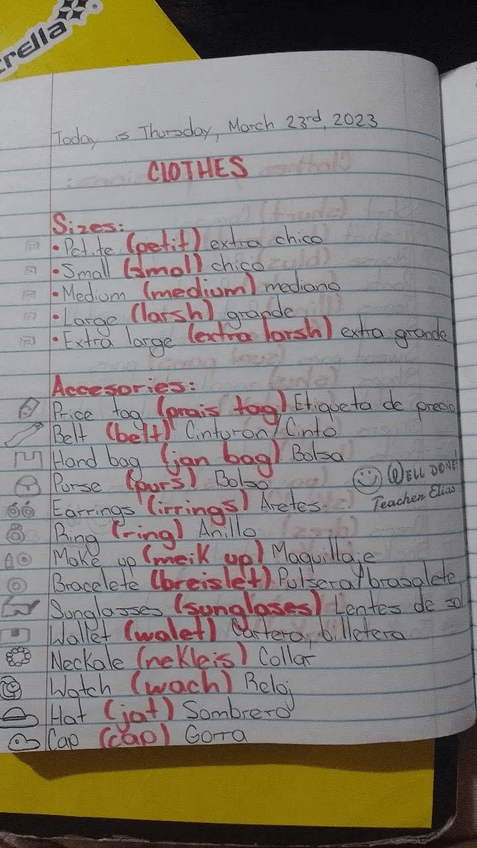 trella
Today is Thursday, March 23rd, 2023
CLOTHES
Sizes:
• Petite (petit) extra chico
• Small (smol) chico
• Medium (medium) mediano
• Large (larsh) grande
• Extra large (extra larsh) extra grande
Accesories:
Price tag (prais tag) Etiqueta de precio
Belt (belt) Cinturon/Cinto
Hand bag (jan bag) Bolsa
Purse (purs) Bolso
WELL DONE!
Earrings (irrings) Aretes
Teacher Elias
Ring (ring) Anillo
Make up (meik up) Maquillaje
Bracelete (breislet) Pulsera/brasalete
Sunglasses (sunglases) Lentes de sol
Wallet (walet) Cartera, billetera
Neckale (nekleis) Collar
Watch (wach) Reloj
Hat (jat) Sombrero
Cap (cap) Gorra